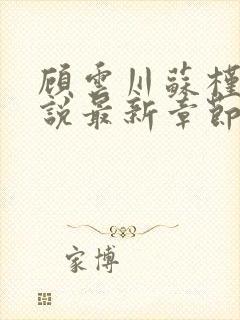 顧雲川蘇槿
說最新章節
家博